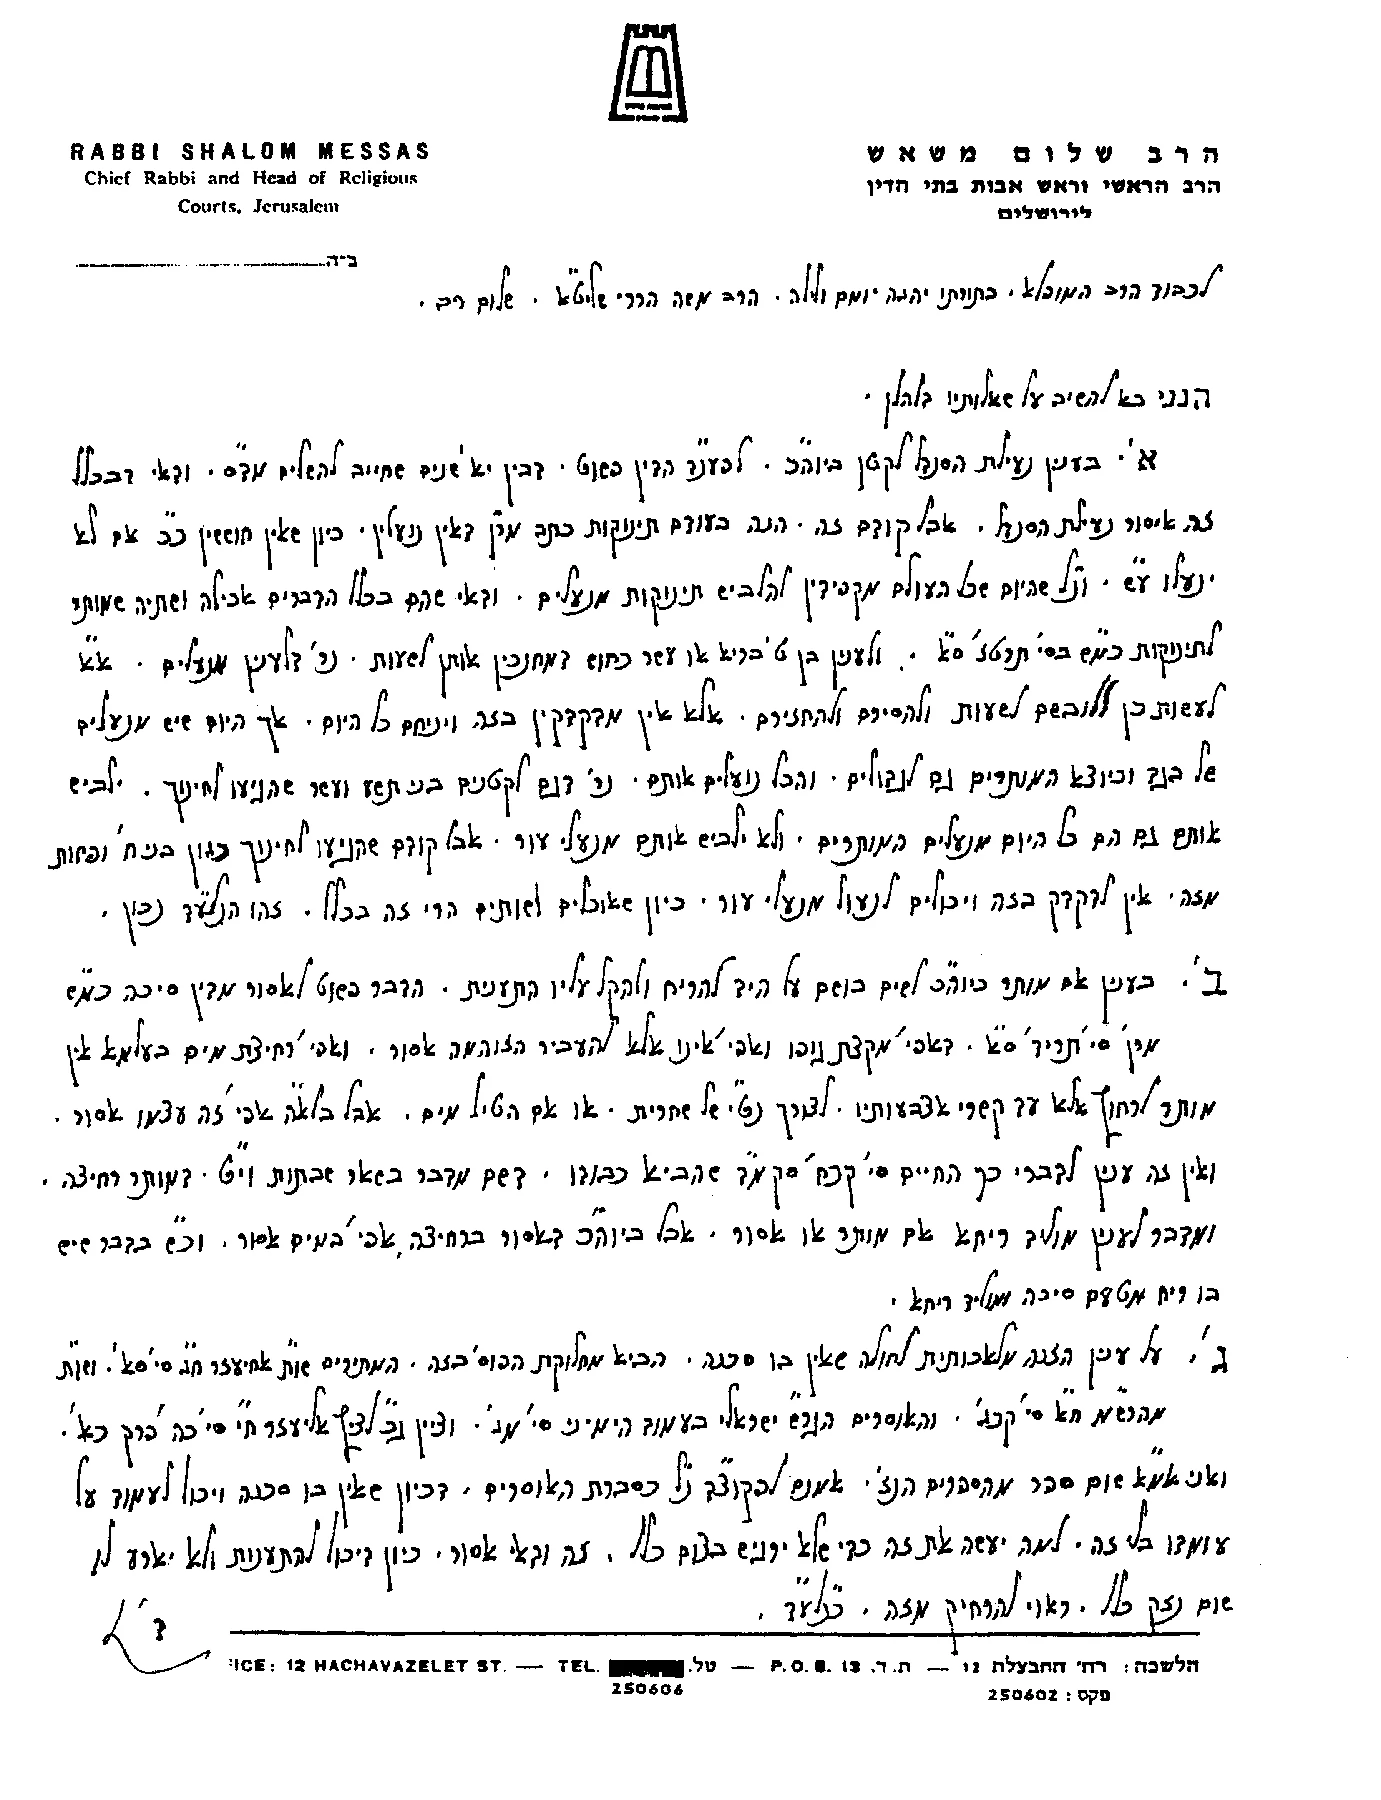 RABBI SHALOM MESSAS
Chief Rabbi and Head of Religious
Courts, Jerusalem
הרב שלום משאש
הרב הראשי וראש אבות בתי הדין
לירושלים
ב״ה
לכבוד הרב המופלא. בתורתו יהגה יומם ולילה. הרב משה הררי שליט״א. שלום רב.
הנני בא להשיב על שאלותיו דלהלן.
א׳. בענין נעילת הסנדל לקטן ביוה״כ. לפענ״ד הדין פשוט. דבין י״א שנים שחייב להשלים מד״ס. ודאי דבכלל
זה איסור נעילת הסנדל. אבל קודם זה. הנה בעודם תינוקות כתב מרן דאין נועלין. כיון שאין חוששין כ״כ אם לא
ינעלו ע״ש. ונ״ל שהיום שכל העולם מקפידין להלביש תינוקות מנעלים. ודאי שהם בכלל הדברים אכילה ושתיה שמותר
לתינוקות כמ״ש בסי׳ תרטז׳ ס״א. ולענין בן ט׳ בריא או עשר כחוש דמחנכין אותן לשעות. נר׳ דלענין מנעלים. א״א
לעשות כן ללובשם לשעות ולהסירם ולהחזירם. אלא אין מדקדקין בזה ויניחם כל היום. אך היום שיש מנעלים
של בגד וכיוצא המותרים גם לגדולים. והכל נועלים אותם. נר׳ דגם לקטנים בני תשע ועשר שהגיעו לחינוך. ילביש
אותם גם הם כל היום מנעלים המותרים. ולא ילביש אותם מנעלי עור. אבל קודם שהגיעו לחינוך כגון בני ח׳ ופחות
מזה. אין לדקדק בזה ויכולים לנעול מנעלי עור. כיון שאוכלים ושותים הרי זה בכלל. זהו הנלע״ד נכון.
ב׳. בענין אם מותר ביוה״כ לשים בושם על היד להריח ולהקל עליו התענית. הדבר פשוט לאסור מדין סיכה כמ״ש
מרן סי׳ תריד׳ ס״א. דאפי׳ מקצת גופו ואפי׳ אינו אלא להעביר הזוהמה אסור. ואפי׳ רחיצת מים בעלמא אין
מותר לרחוץ אלא עד קשרי אצבעותיו. לצורך נט״י של שחרית. או אם הטיל מים. אבל בלא״ה אפי׳ זה עצמו אסור.
ואין זה ענין לדברי כף החיים סי׳ קכח׳ סק מ״ד שהביא כבודו. דשם מדבר בשאר שבתות וי״ט. דמותר רחיצה.
ומדבר לענין מוליד ריחא אם מותר או אסור. אבל ביוה״כ דאסור ברחיצה אפי׳ במים אסור. וכ״ש בדבר שיש
בו ריח מטעם סיכה ומוליד ריחא.
ג׳. על ענין הזנה מלאכותית לחולה שאין בו סכנה. הביא מחלוקת הפוס׳ בזה. המתירים שו״ת אחיעזר ח״ג סי׳ ס״א. ושו״ת
מהרש״ם ח״א סי׳ קכג׳. והאוסרים הגר״ש ישראלי בעמוד הימיני סי׳ מג׳. וציין ג״כ לציץ אליעזר ח״י סי׳ כה׳ פרק כא׳.
ואני אמ״א שום ספר מהספרים הנז׳. אמנם לפקוצ״ד נ״ל כסברת האוסרים. דכיון שאין בו סכנה ויכול לעמוד על
עומדו בלי זה. למה יעשה את זה כדי שלא ירגיש בצום כלל. זה ודאי אסור. כיון דיכול להתענות ולא יארע לו
שום נזק כלל. ראוי להרחיק מזה. כנלע״ד.
הלשכה: רח׳ החבצלת 12 — ת.ד. 13 P.O.B. — טל. TEL. — ICE: 12 HACHAVAZELET ST.
250606
פקס: 250602